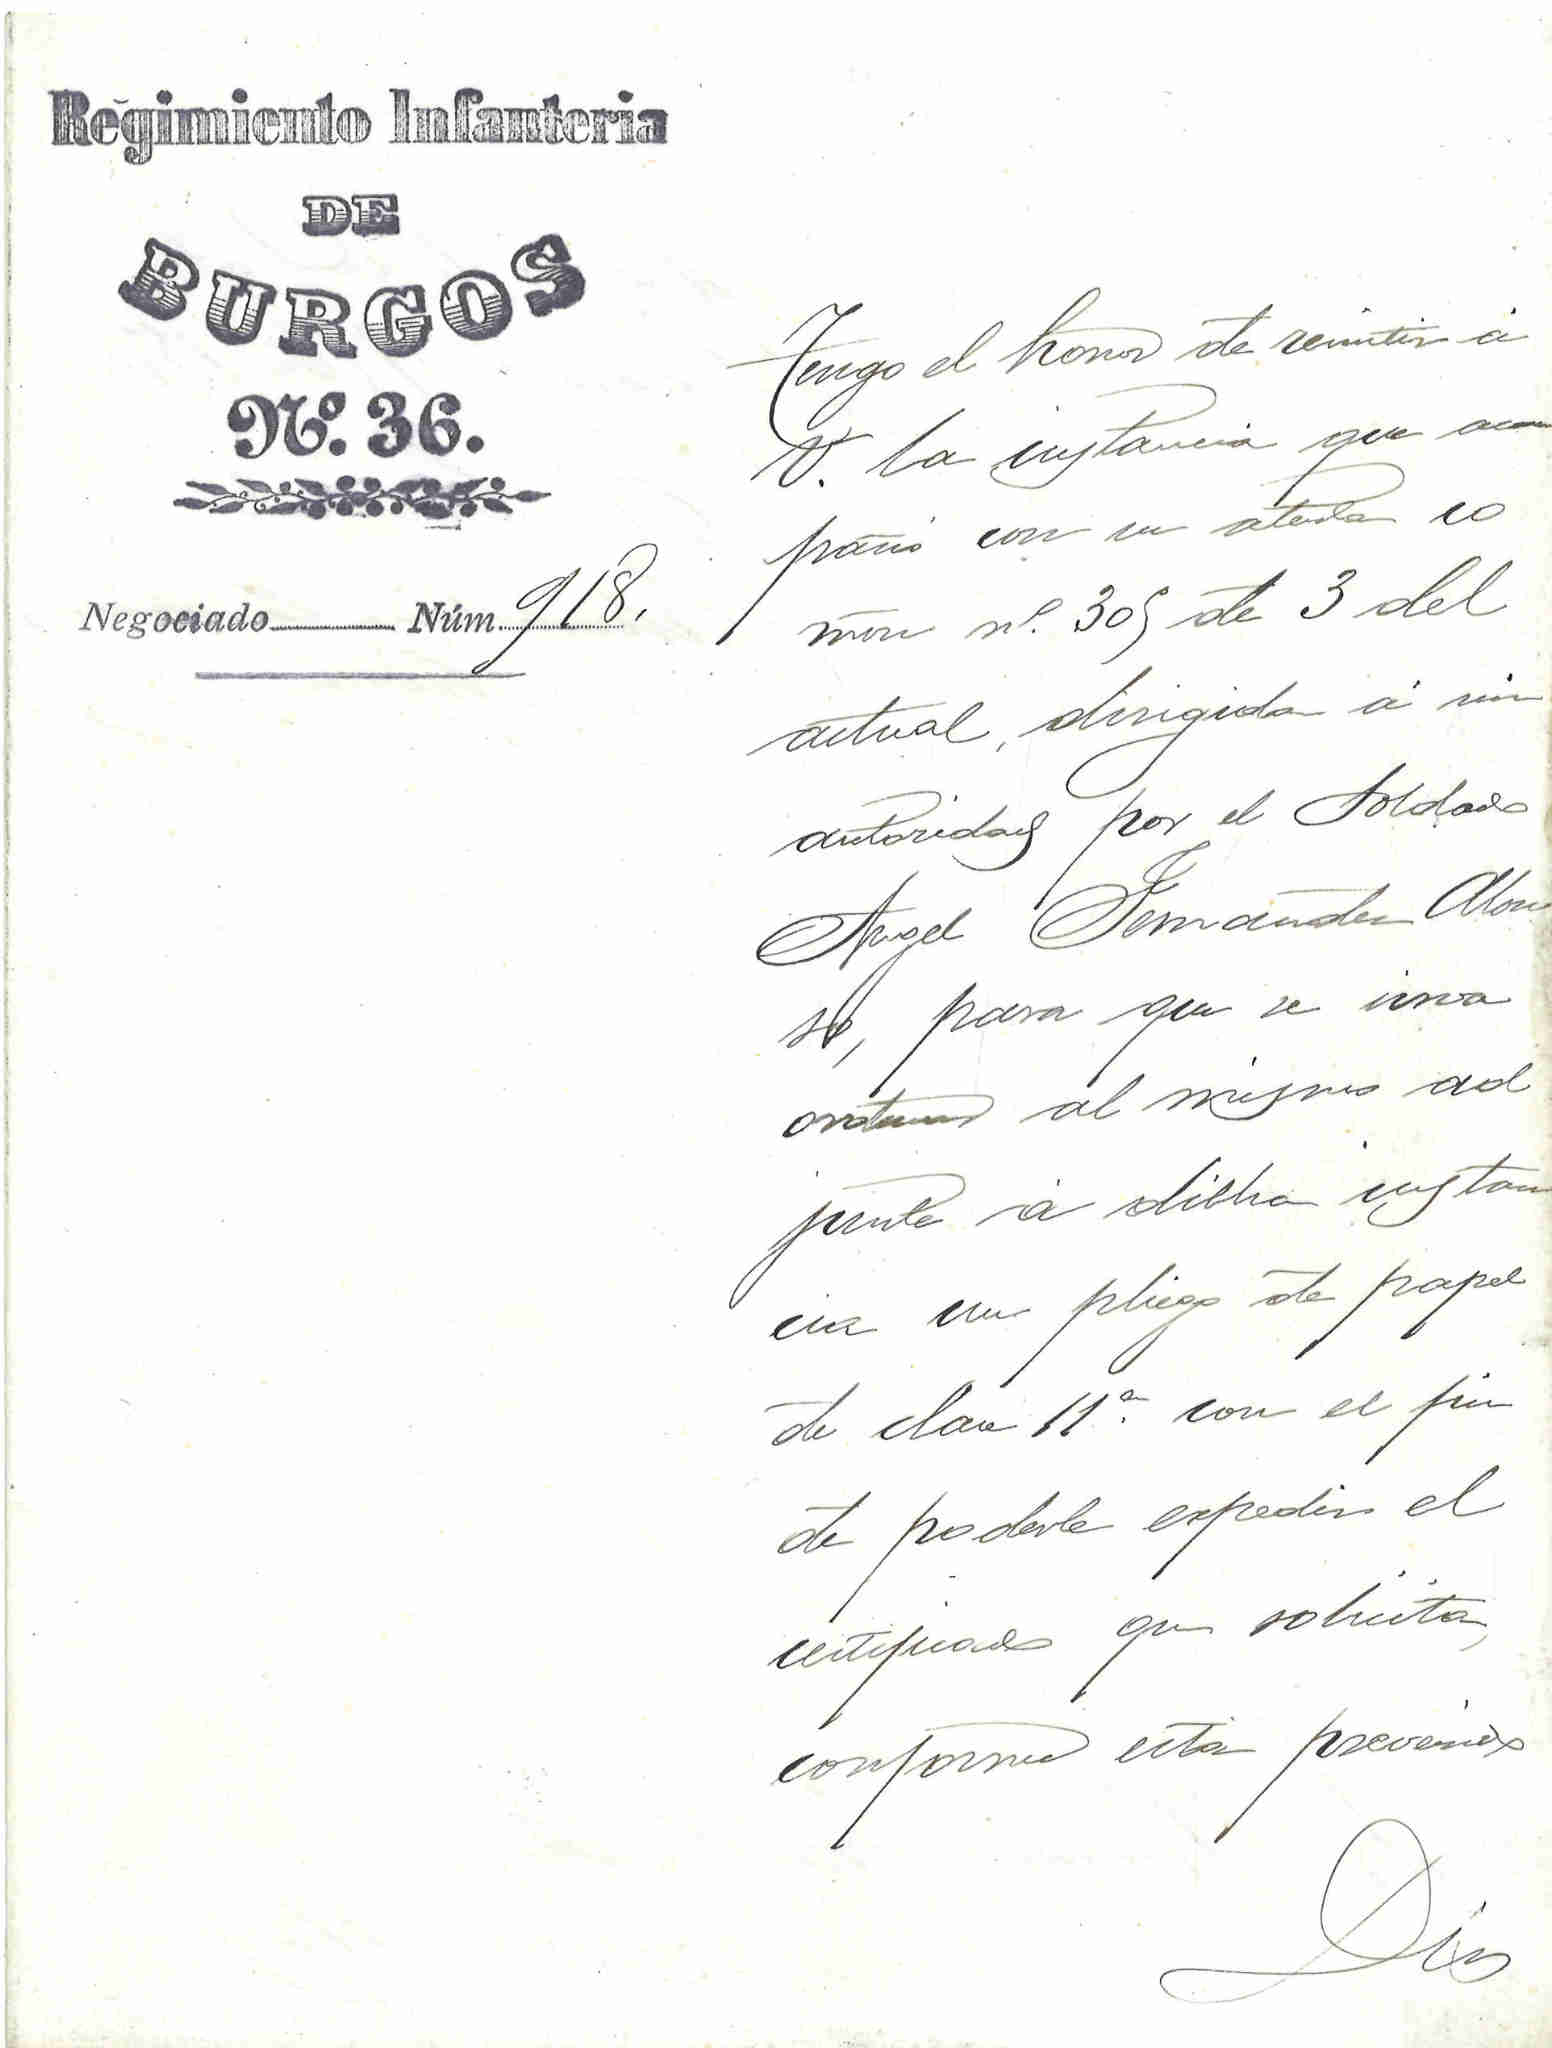 Regimiento Infanteria
DE
BURGOS
Nº. 36.
Negociado Núm. 918.
Tengo el honor de remitir á
V. la instancia que acom
pañó con su atenta co
mon nº. 305 de 3 del
actual, dirigida á mi
autoridad por el Soldado
Angel Fernández Alon
so, para que se sirva
ordenar al mismo ad
junte á dicha instan
cia un pliego de papel
de clase 11ª. con el fin
de poderle expedir el
certificado que solicita,
conforme está prevenido
Dios